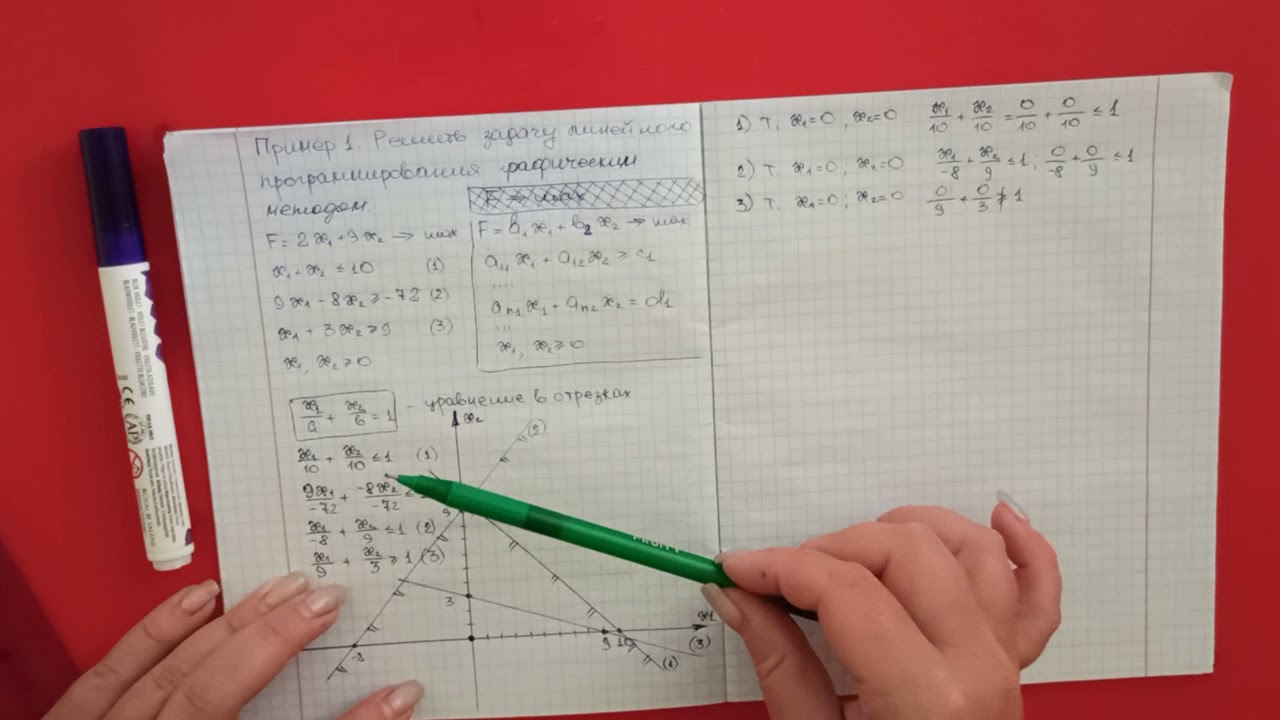 Пример 1. Решить задачу линейного
программирования графическим
методом.
F = 2x₁ + 9x₂ → max
x₁ + x₂ ≤ 10 (1)
9x₁ - 8x₂ ≥ -72 (2)
x₁ + 3x₂ ≥ 9 (3)
x₁, x₂ ≥ 0
F → max
F = b₁x₁ + b₂x₂ → max
a₁₁x₁ + a₁₂x₂ ≥ c₁
....
aₙ₁x₁ + aₙ₂x₂ = d₁
...
x₁, x₂ ≥ 0
x₁/a + x₂/b = 1 - уравнение в отрезках
x₁/10 + x₂/10 ≤ 1 (1)
9x₁/-72 + -8x₂/-72 ≤
x₁/-8 + x₂/9 ≤ 1 (2)
x₁/9 + x₂/3 ≥ 1 (3)
x₂
(2)
9
3
-8
9 10
x₁
(3)
(1)
1) т. x₁=0, x₂=0 x₁/10 + x₂/10 = 0/10 + 0/10 ≤ 1
2) т. x₁=0; x₂=0 x₁/-8 + x₂/9 ≤ 1; 0/-8 + 0/9 ≤ 1
3) т. x₁=0; x₂=0 0/9 + 0/3 ≱ 1